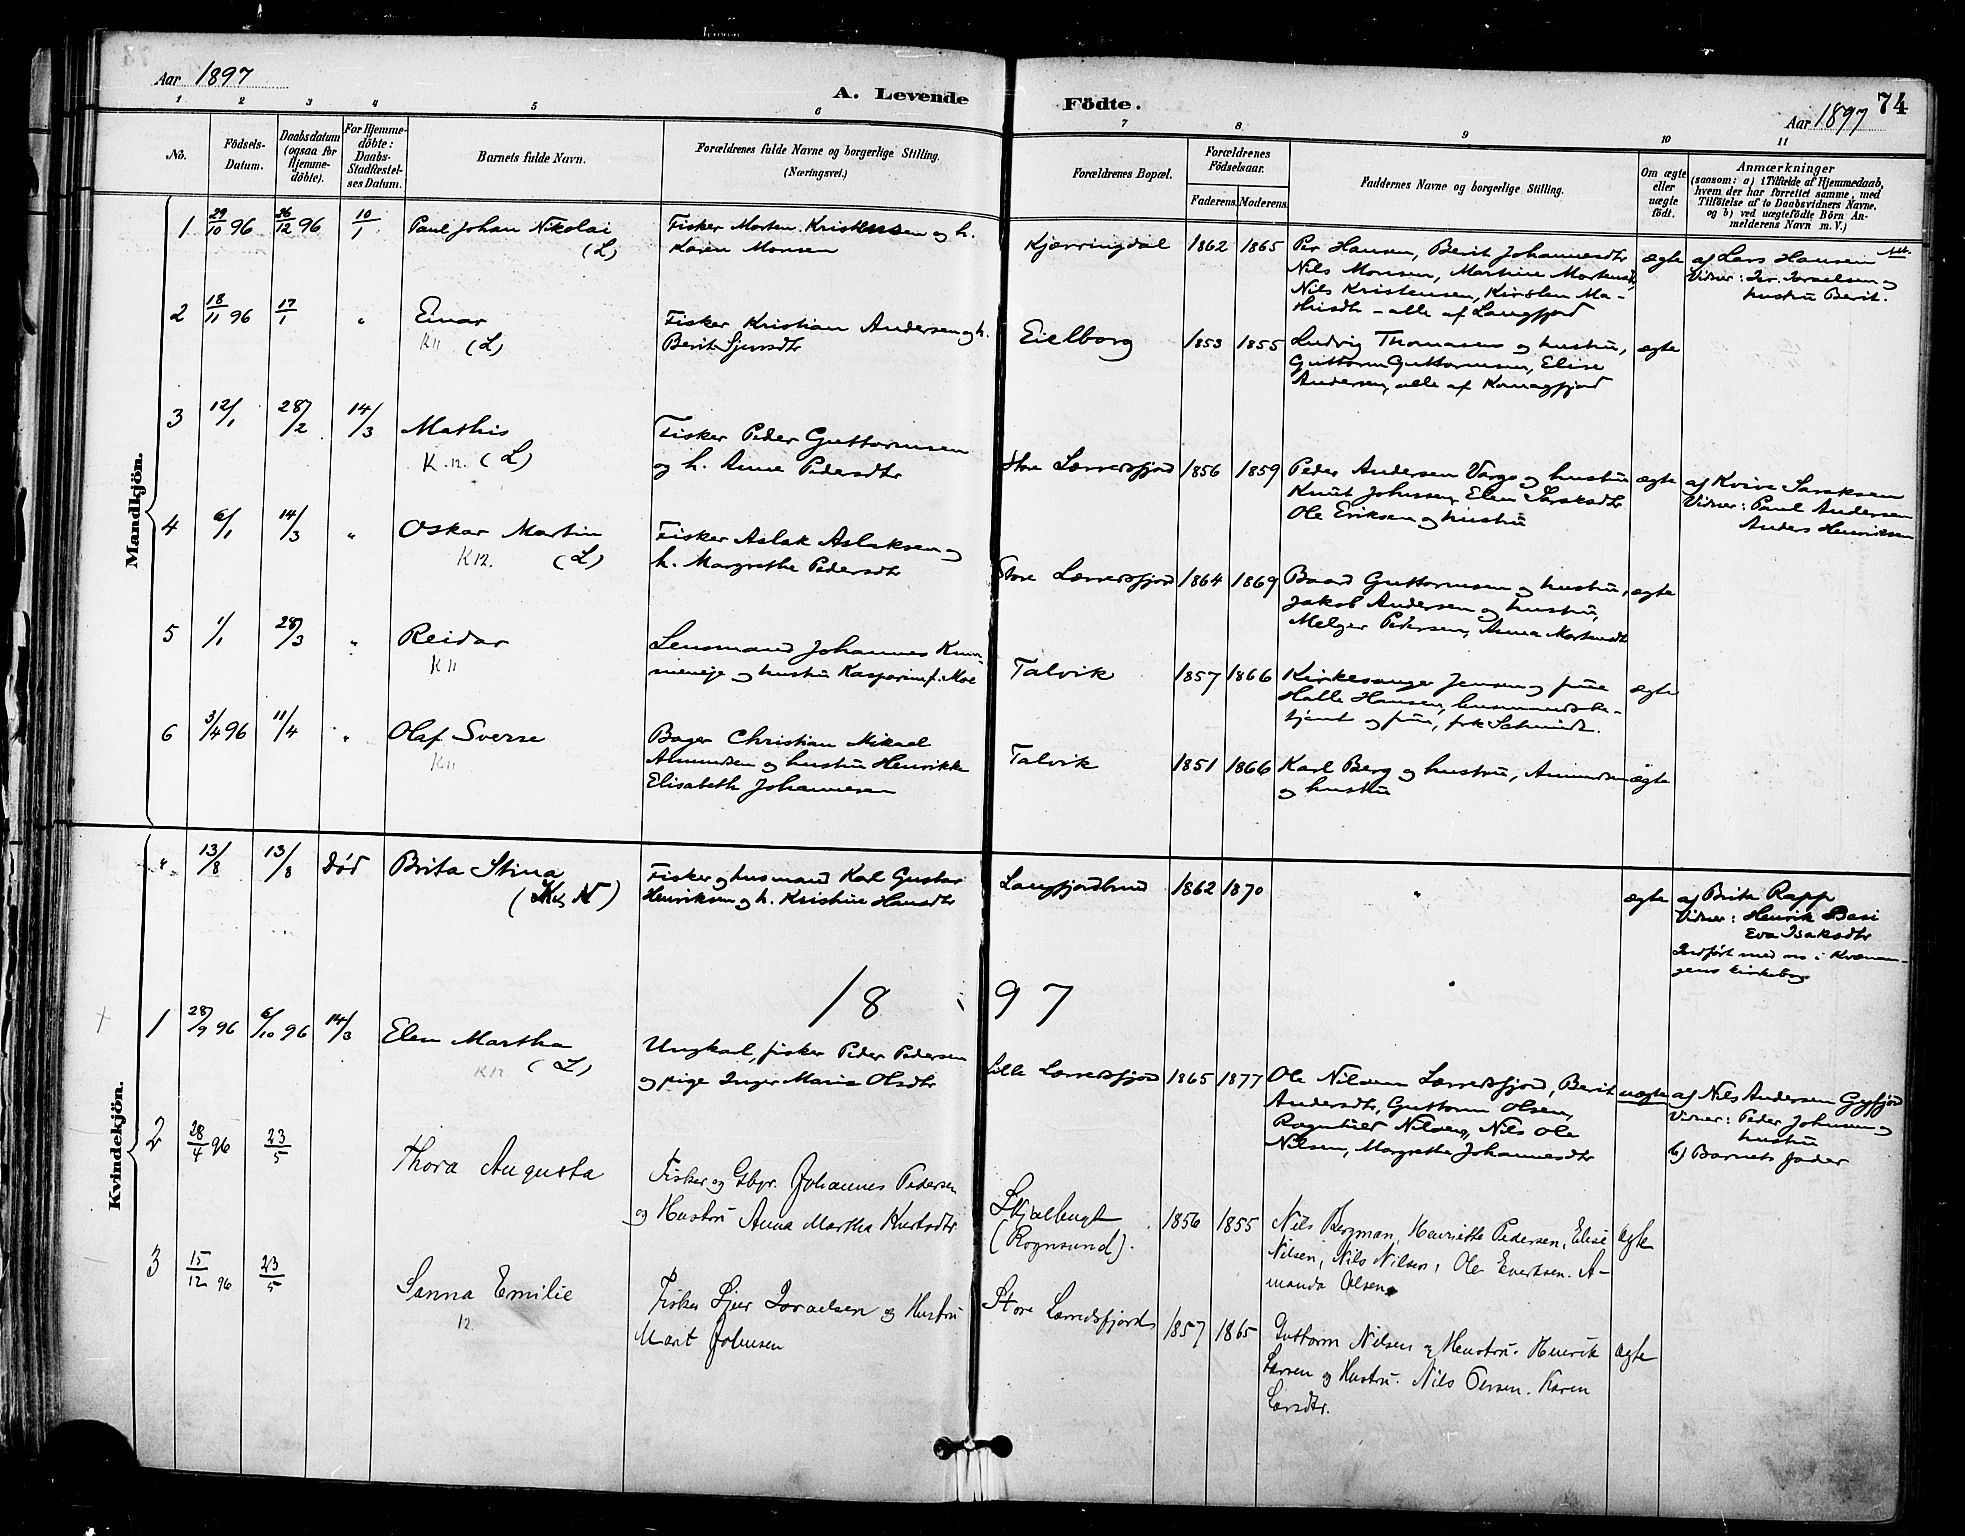 Aar 1897
A. Levende
Födte.
74
Aar 1897
1 2 3 4 5 6 7 8 9 10 11
No.
Födsels-Datum.
Daabsdatum (ogsaa for Hjemmedöbte).
For Hjemmedöbte: Daabs-Stadfæstelses Datum.
Barnets fulde Navn.
Forældrenes fulde Navne og borgerlige Stilling.
(Næringsvei.)
Forældrenes Bopæl.
Forældrenes Födselsaar.
Faderens. Moderens.
Faddernes Navne og borgerlige Stilling.
Om ægte eller uægte födt.
Anmærkninger
(saasom: a) i Tilfælde af Hjemmedaab, hvem der har forrettet samme, med Tilföielse af to Daabsvidners Navne. og b) ved uægtefödte Börn Anmelderens Navn m. V.)
Mandkjön.
1 29/10 96 26/12 96 10/1 Paul Johan Nikolai (L)
Fisker Morten Kristensen og h.
Karen Monsen
Kjærringdal 1862 1865
Per Hansen, Berit Johannesdtr
Nils Monsen, Martine Mortensdtr,
Nils Kristensen, Kirsten Ma-
thisdtr - alle af Langfjord
ægte
af Lars Hansen
Vidner: Per. Israelsen og
hustru Berit.
2 18/11 96 17/1 " Einar
K11 (L)
Fisker Kristian Andersen og h.
Berit Sjursdtr
Eielborg 1853 1855
Ludvig Thomassen og hustru,
Guttorm Guttormsen, Elise
Andersen, alle af Komagfjord
ægte
3 12/1 28/2 14/3 Mathis
K.12. (L)
Fisker Peder Guttormsen
og h. Anne Pedersdtr
Store Lærredsfjord 1856 1859
Peder Andersen Varg og hustru
Knut Johnsen, Elen
Ole Eriksen og hustru
ægte
af Kvive Saraksen
Vidner: Paul Andersen
Anders Henriksen
4 6/1 14/3 " Oskar Martin
K12. (L)
Fisker Aslak Aslaksen og
h. Margrethe Pedersdtr
Store Lærredsfjord 1864 1869
Baard Guttormsen og hustru,
Jakob Andersen og hustru,
Melger Pedersen, Anna Mortensdtr
ægte
5 1/1 28/3 " Reidar
K11
Lensmand Johannes Kum-
meneje og hustru Kasparine f. Moe
Talvik 1857 1866
Kirkesanger Jensen og frue
Halle Hansen, lensmandsbe-
tjent og frue, frk Schmidt.
ægte
6 3/4 96 11/4 " Olaf Sverre
K11
Bager Christian Mikael
Amundsen og hustru Henrikke
Elisabeth Johannesen
Talvik 1851 1866
Karl Berg og hustru, Amundsen
og hustru
ægte
Kvindekjön.
" 13/8 13/8 død Brita Stina
(K, N)
Fisker og husmand Karl Gustav
Henriksen og h. Kristine Hansdtr
Langfjordbund 1862 1870
"
ægte
af Brita Rapp
Vidner: Henrik Basi
Eva Isaksdtr
Indført med no i Kvænan-
gens kirkebog
1897
1 28/9 96 6/10 96 14/3 Elen Martha
K12 (L)
Ungkal, fisker Peder Pedersen
og pige Inger Maria Olsdtr
Lille Lærredsfjord 1865 1877
Ole Nilsen Lærredsfjord, Berit
Andersdtr, Guttorm Olsen,
Ragnhild Nilsen, Nils Ole
Nilsen, Margrethe Johannesdtr
uægte
af Nils Andersen
Vidner: Peder Johnsen og
hustru
b) Barnets fader
2 28/4 96 23/5 Thora Augusta
Fisker og Gbr. Johannes Pedersen
og Hustru Anna Martha Knutsdtr
Skjælbugt
(Rognsund). 1856 1855
Nils Bergman, Henriette Pedersen, Elise
Nilsen, Nils Nilsen, Ole Evertsen. A-
manda Olsen.
ægte
3 15/12 96 23/5 Sanna Emilie
12.
Fisker Sjur Israelsen og Hustru
Marit Johnsen
Store Lærredsfjord 1857 1865
Guttorm Nilsen og Hustru. Henrik
Larsen og Hustru. Nils Persen. Karen
Larsdtr.
ægte